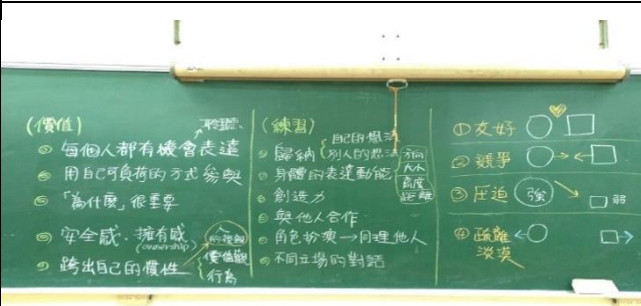 (價值)
聆聽
◎ 每個人都有機會表達
◎ 用自己可負荷的方式參與
◎ 「為什麼」很重要
◎ 安全感、擁有感
(ownership)
◎ 跨出自己的慣性
人
價值觀
行為
(練習)
自己的想法
◎ 歸納 別人的想法
◎ 身體的表達動能
方向
大小
高度
距離
◎ 創造力
◎ 與他人合作
◎ 角色扮演→同理他人
◎ 不同立場的對話
① 友好
② 競爭
③ 压迫 強 弱
④ 疏離
淡漠